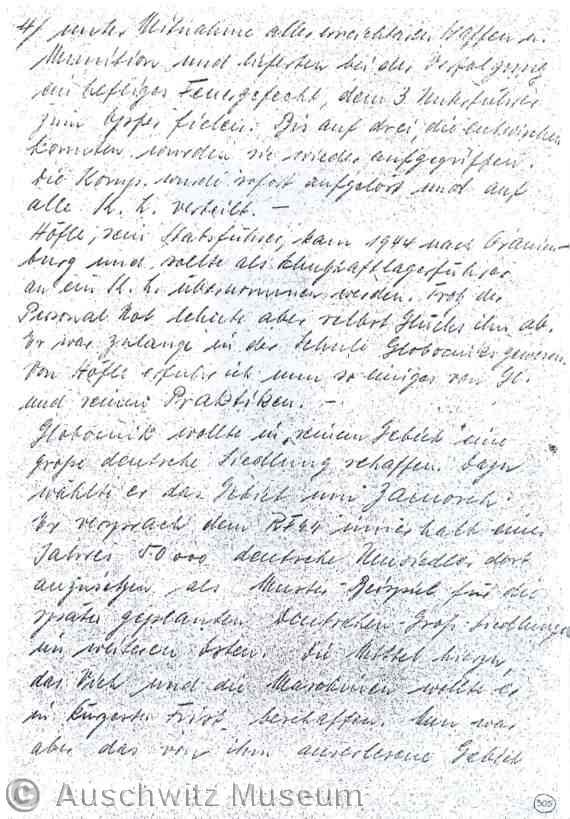 4/ unter Mitnahme aller erreichbaren Waffen u.
Munition und lieferten bei der Verfolgung
ein heftiges Feuergefecht, dem 3 Unterführer
zum Opfer fielen. Bis auf drei, die entwischen
konnten wurden sie wieder aufgegriffen.
Die Komp. wurde sofort aufgelöst und auf
alle K. L. verteilt. —
Höfle, sein Stabsführer, kam 1944 nach Oranien-
burg und sollte als Schutzhaftlagerführer
an ein K. L. übernommen werden. Trotz der
Personal Not lehnte aber selbst Glücks ihn ab.
Er war zulange in der Schule Globocniks gewesen.
Von Höfle erfuhr ich nun so einiges von Gl.
und seinen Praktiken. —
Globocnik wollte in „seinem Gebiet" eine
große deutsche Siedlung schaffen. Dazu
wählte er das Gebiet um Zamosch.
Er versprach dem RFSS innerhalb eines
Jahres 50 000 deutsche Neusiedler dort
anzusetzen als Muster-Beispiel für die
später geplanten Deutschen-Groß-Siedlungen
im weiteren Osten. Die Mittel hierzu,
das Vieh und die Maschinen wollte er
in kürzester Frist beschaffen. Nun war
aber das von ihm auserlesene Gebiet
© Auschwitz Museum